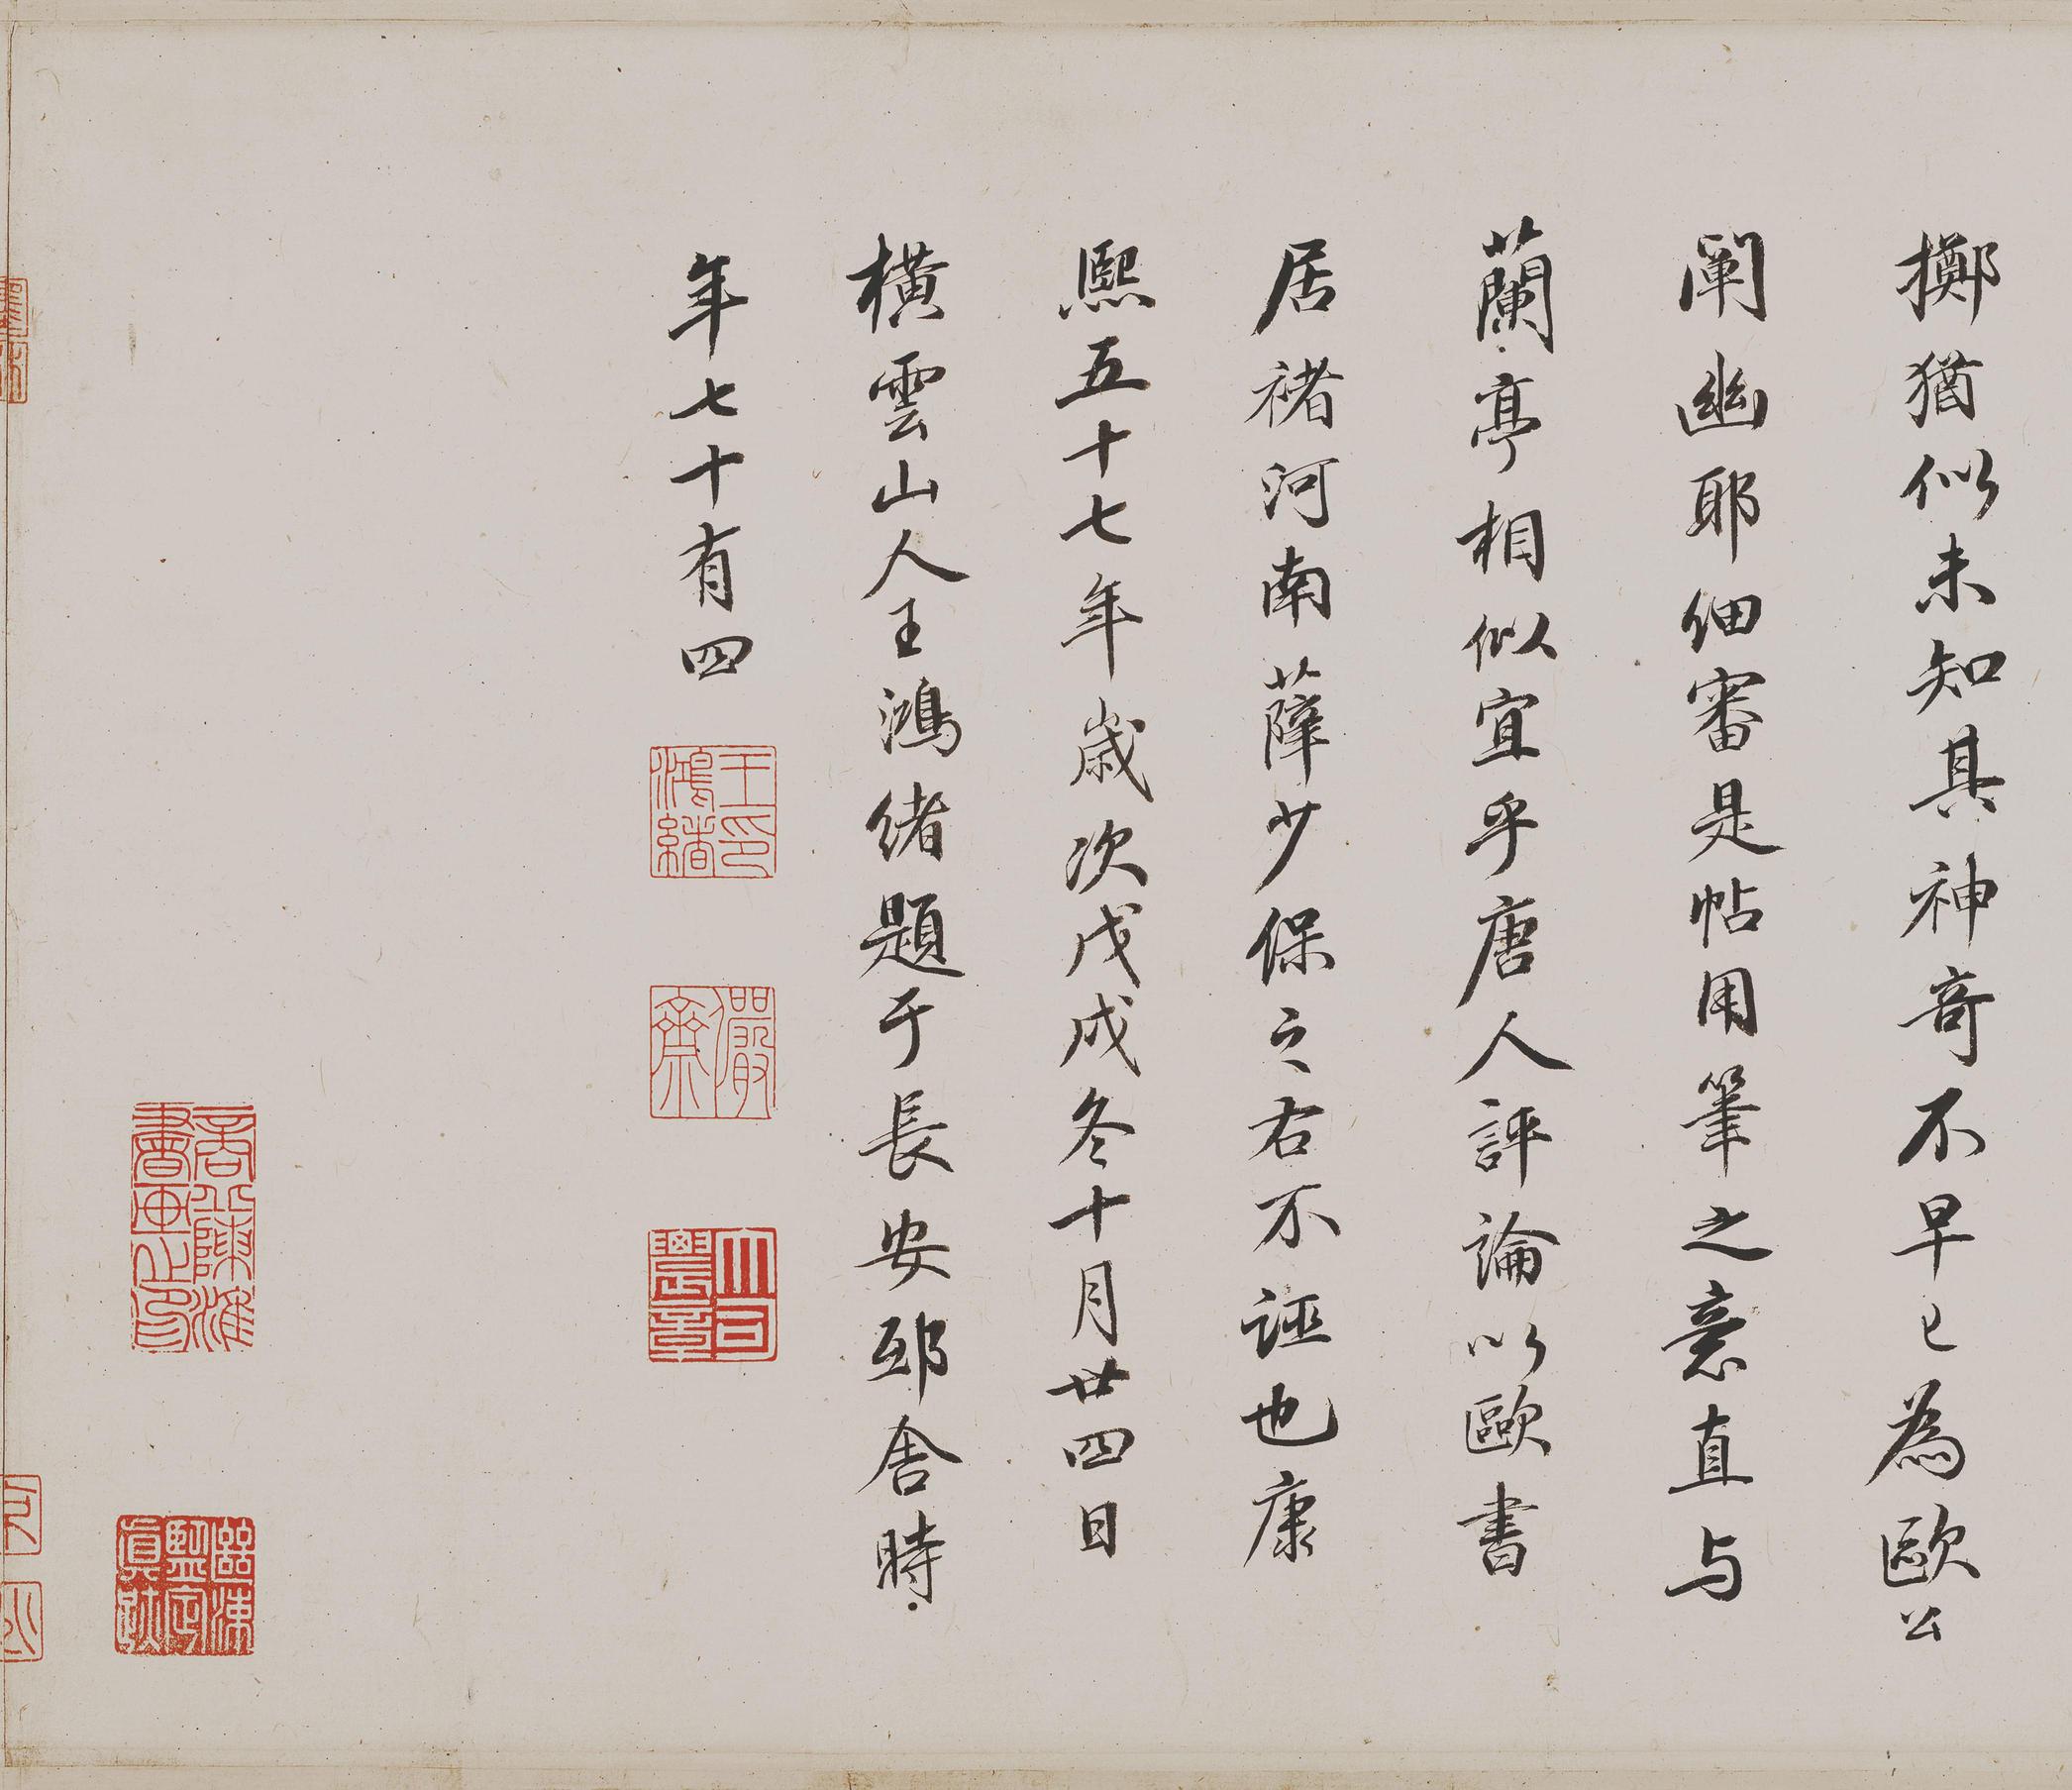 擲猶似未知其神奇不早已為歐公
闡幽耶細審是帖用筆之意直与
蘭亭相似宜乎唐人評論以歐書
居褚河南薛少保之右不誣也康
熙五十七年歲次戊戌冬十月廿四日
橫雲山人王鴻緒題于長安邸舍時
年七十有四
王印鴻緒
儼齋